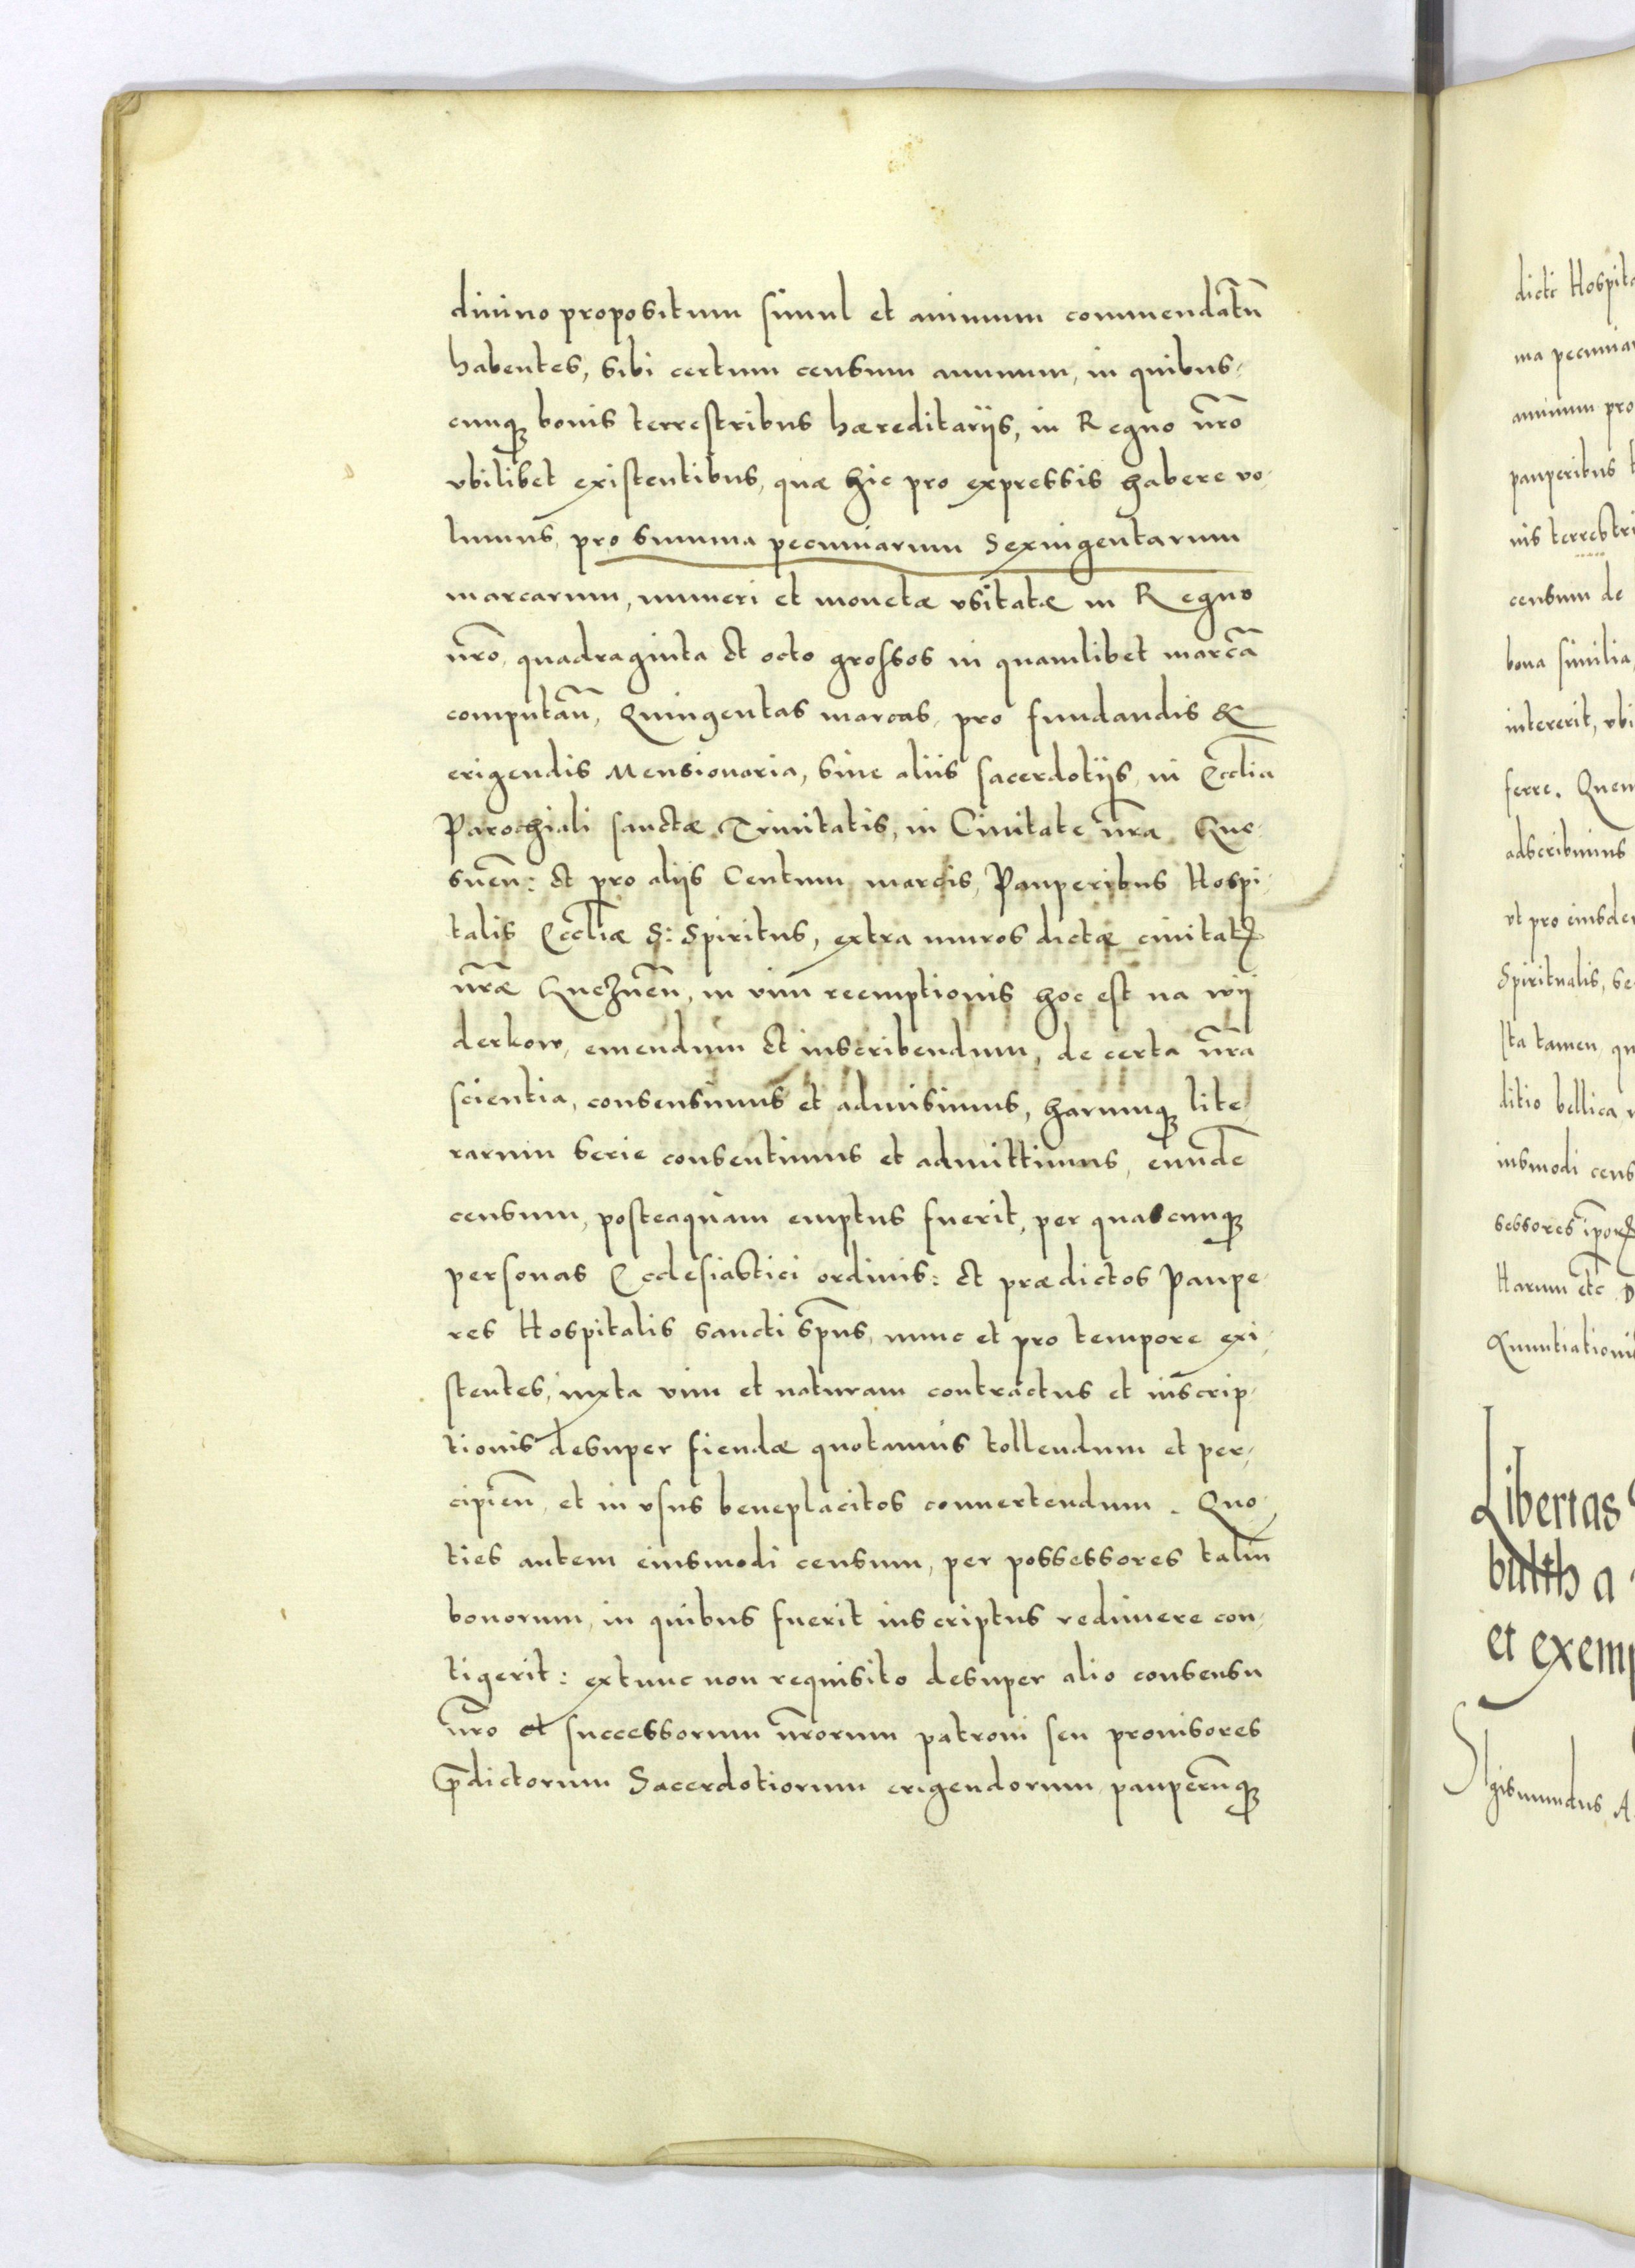 diuino propositum simul et animum commendatū
habentes, sibi certum censum annuum, in quibus-
cunq bonis terrestribus hæreditarijs, in Regno nr̄o
vbilibet existentibus, quæ hic pro expressis habere vo-
lumus, pro summa pecuniarum Sexingentarum
marcarum, numeri et monetæ vsitatæ in Regno
nr̄o, quadraginta et octo grossos in quamlibet marcā
computan̄, Quingentas marcas, pro fundandis &
erigendis Mensionaria, siue aliis sacerdotijs, in Eccl̄ia
Parochiali sanctæ Trinitatis, in Ciuitate nr̄a Gne-
snen̄: et pro alijs Centum marcis, Pauperibus Hospi-
talis Eccl̄iæ S: Spiritus, extra muros dictæ ciuitat
nr̄æ Gneznen̄, in vim reemptionis hoc est na wij
derkow, emendum et inscribendum, de certa nr̄a
scientia, consensimus et admisimus, harumq lite-
rarum serie consentimus et admittimus, eundē
censum, posteaquam emptus fuerit, per quascunq
personas Ecclesiastici ordinis: et prædictos Paupe-
res Hospitalis sancti Sp̄us, nunc et pro tempore exi-
stentes, iuxta vim et naturam contractus et inscrip-
tionis desuper fiendæ quotannis tollendum et per-
cipien̄, et in vsus beneplacitos conuertendum. Quo-
ties autem eiusmodi censum, per possessores taliū
bonorum, in quibus fuerit inscriptus redimere con-
tigerit: extunc non requisito desuper alio consensu
nr̄o et successorum nr̄orum patroni seu prouisores
p̄dictorum Sacerdotiorum erigendorum, pauperūq
dicti Hospita
ma pecuniar
annuum pro
pauperibus
nis terrestri
censum de
bona similia,
intererit, vbi
ferre. Quem
adscribimus
vt pro eiusde
Spiritualis, se
Ita tamen, qu
ditio bellica,
iusmodi cens
sessores ip̄or
Harum etc̄ D
Enuntiationi
Libertas
bulth a
et exemp
SIgismundus A